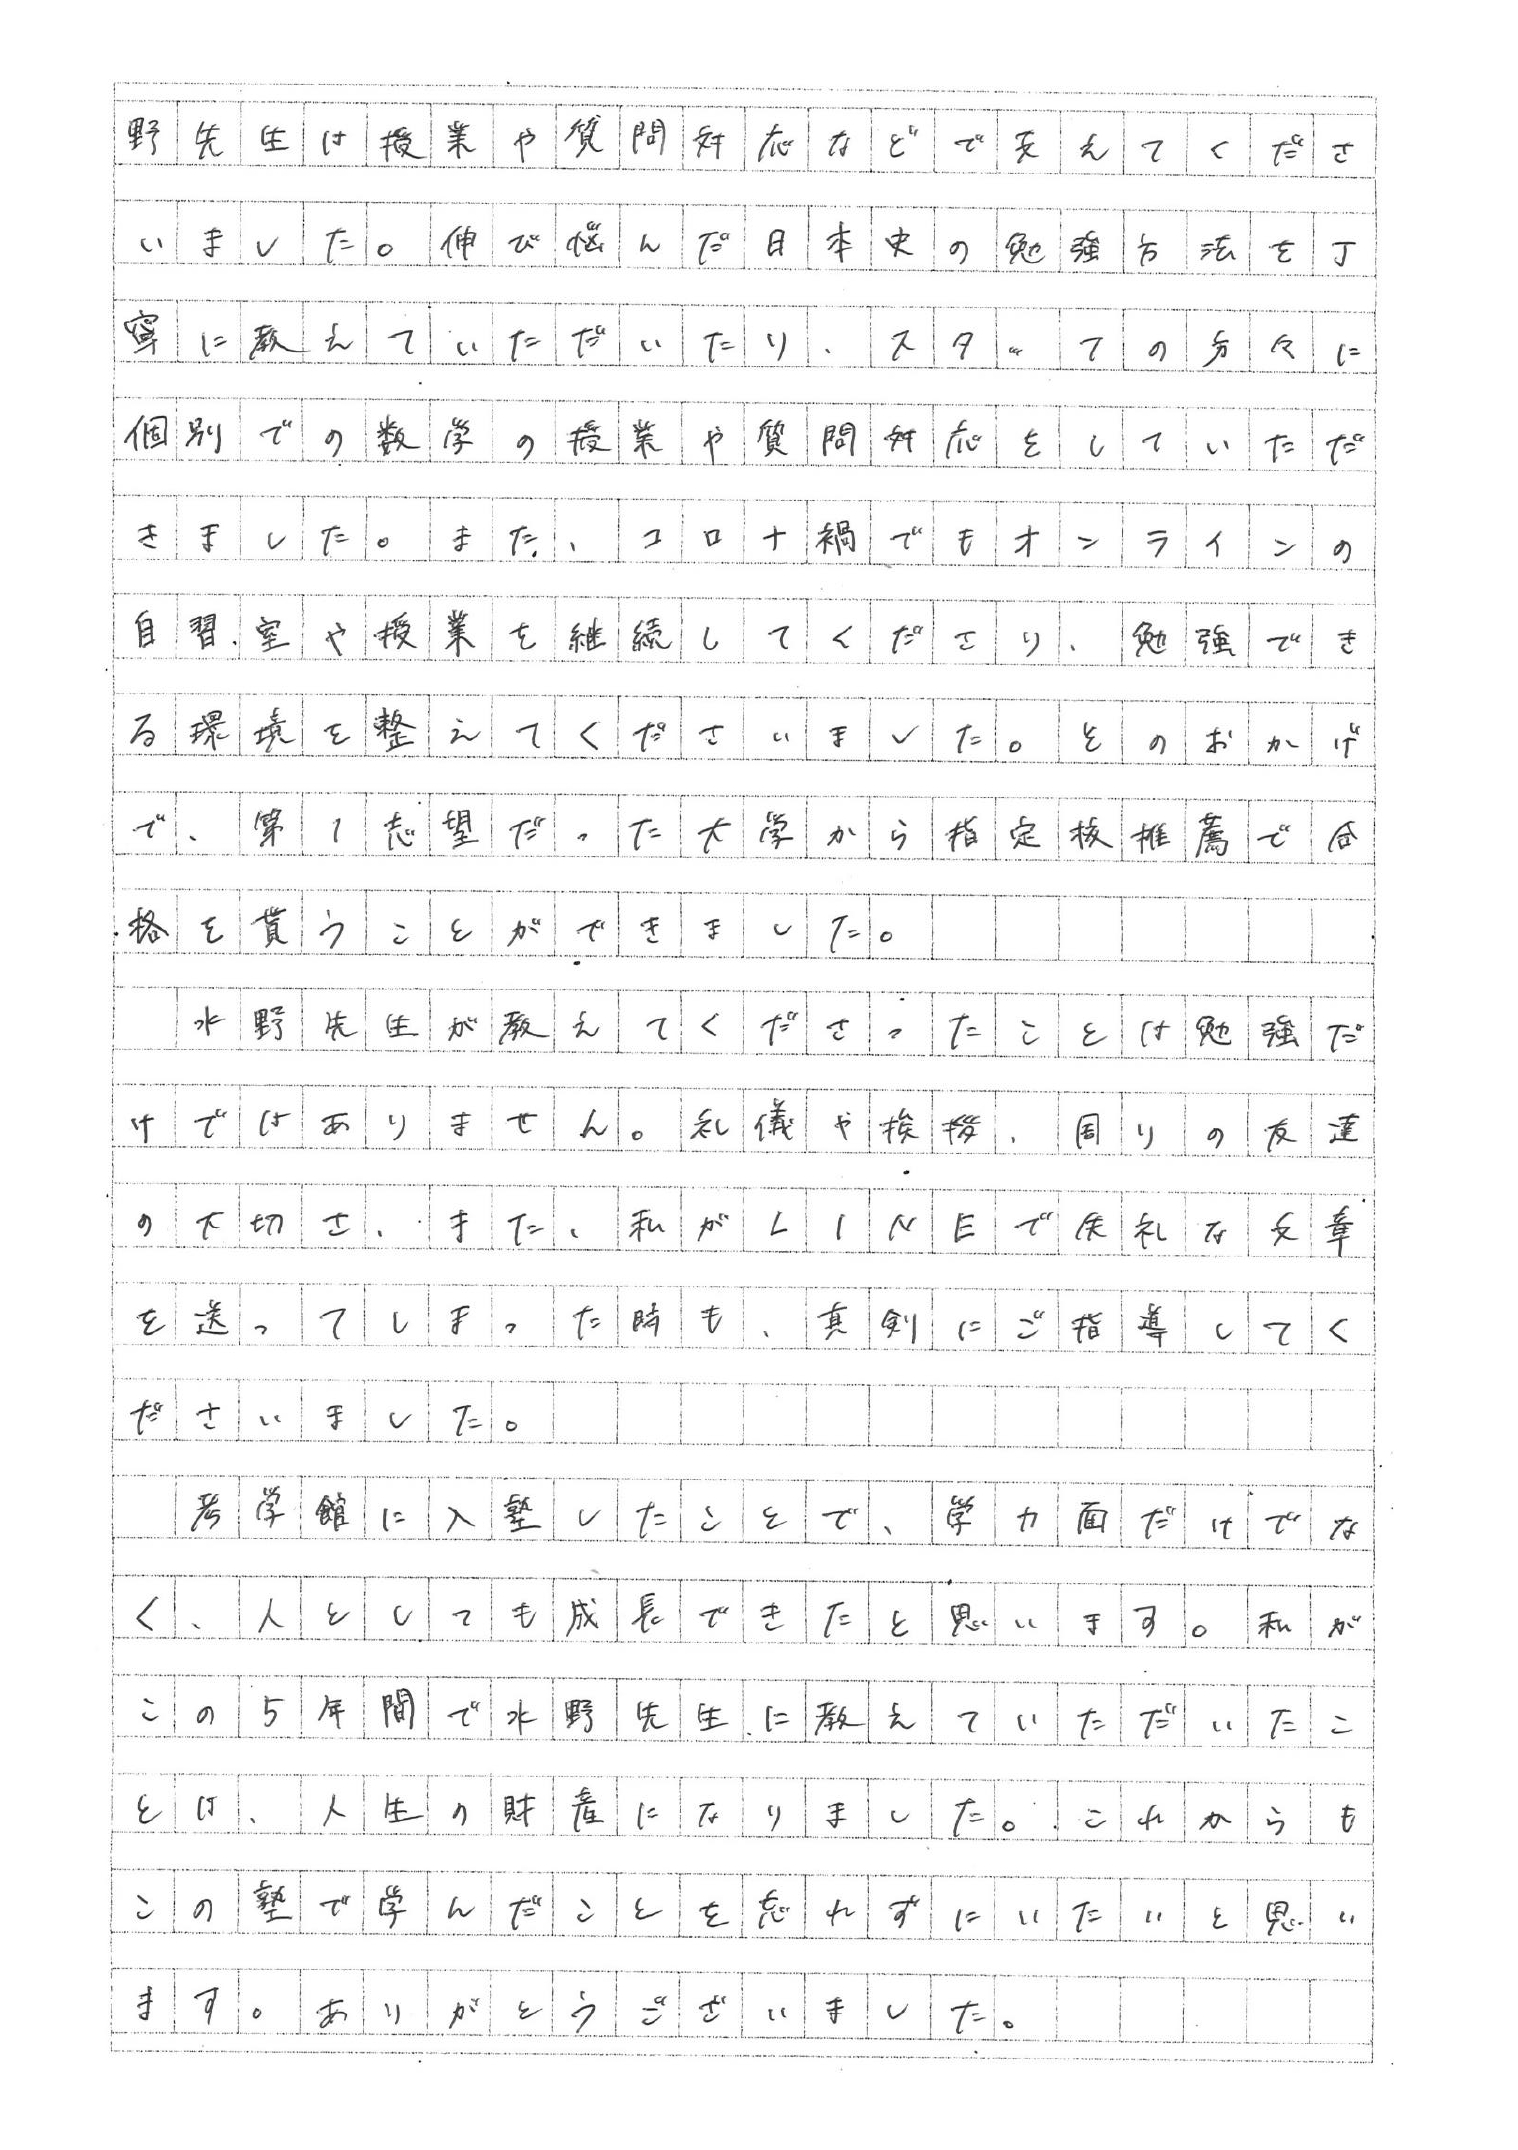 野先生は授業や質問対応などで支えてくださ
いました。伸び悩んだ日本史の勉強方法を丁
寧に教えていただいたり、スタッフの方々に
個別での数学の授業や質問対応をしていただ
きました。また、コロナ禍でもオンラインの
自習室や授業を継続してくださり、勉強でき
る環境を整えてくださいました。そのおかげ
で、第1志望だった大学から指定校推薦で合
格を貰うことができました。
水野先生が教えてくださったことは勉強だ
けではありません。礼儀や挨拶、周りの友達
の大切さ、また、私がLINEで失礼な文章
を送ってしまった時も、真剣にご指導してく
ださいました。
考学館に入塾したことで、学力面だけでな
く、人としても成長できたと思います。私が
この5年間で水野先生に教えていただいたこ
とは、人生の財産になりました。これからも
この塾で学んだことを忘れずにいたいと思い
ます。ありがとうございました。